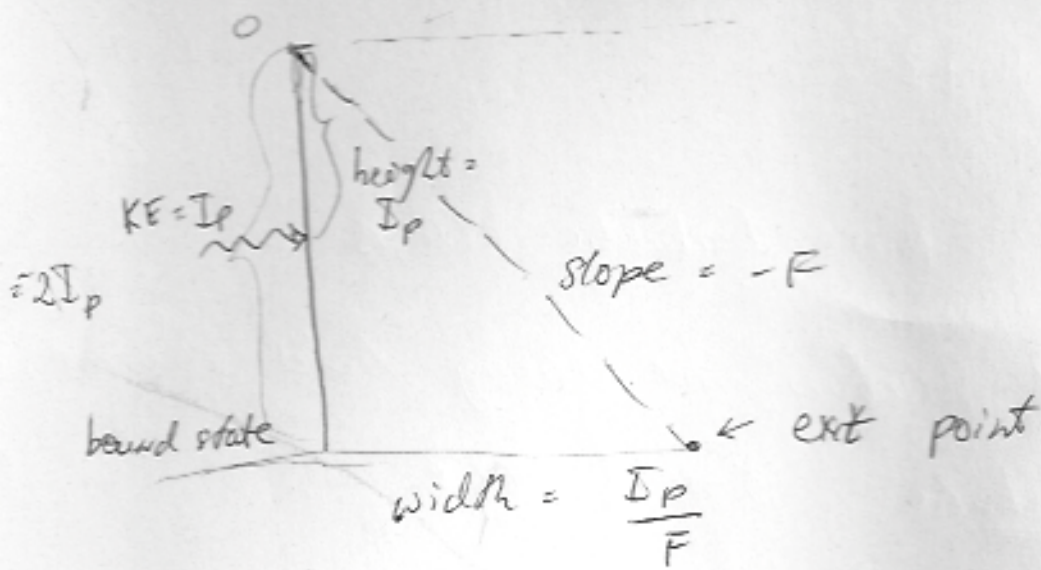 0
height =
I_p
KE = I_p
slope = -F
= 2I_p
bound state
← exit point
width = I_p
F